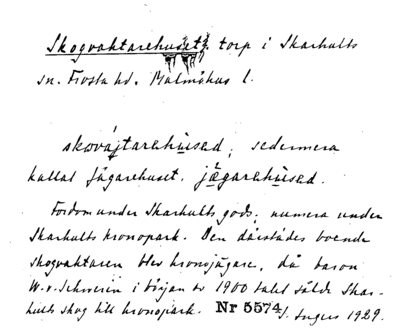 Skogvaktarehuset, torp i Skarhults
sn. Frosta hd. Malmöhus l.
skovájtarehùsed; sedermera
kallat Jägarehuset, jǽgarehùsed.
Fordom under Skarhults gods; numera under
Skarhults kronopark. Den därstädes boende
skogvaktaren blev kronojägare, då baron
W. v. Schwerin i början av 1900 talet sålde Skar-
hults skog till kronopark. Nr 5574 I. Ingers 1929.